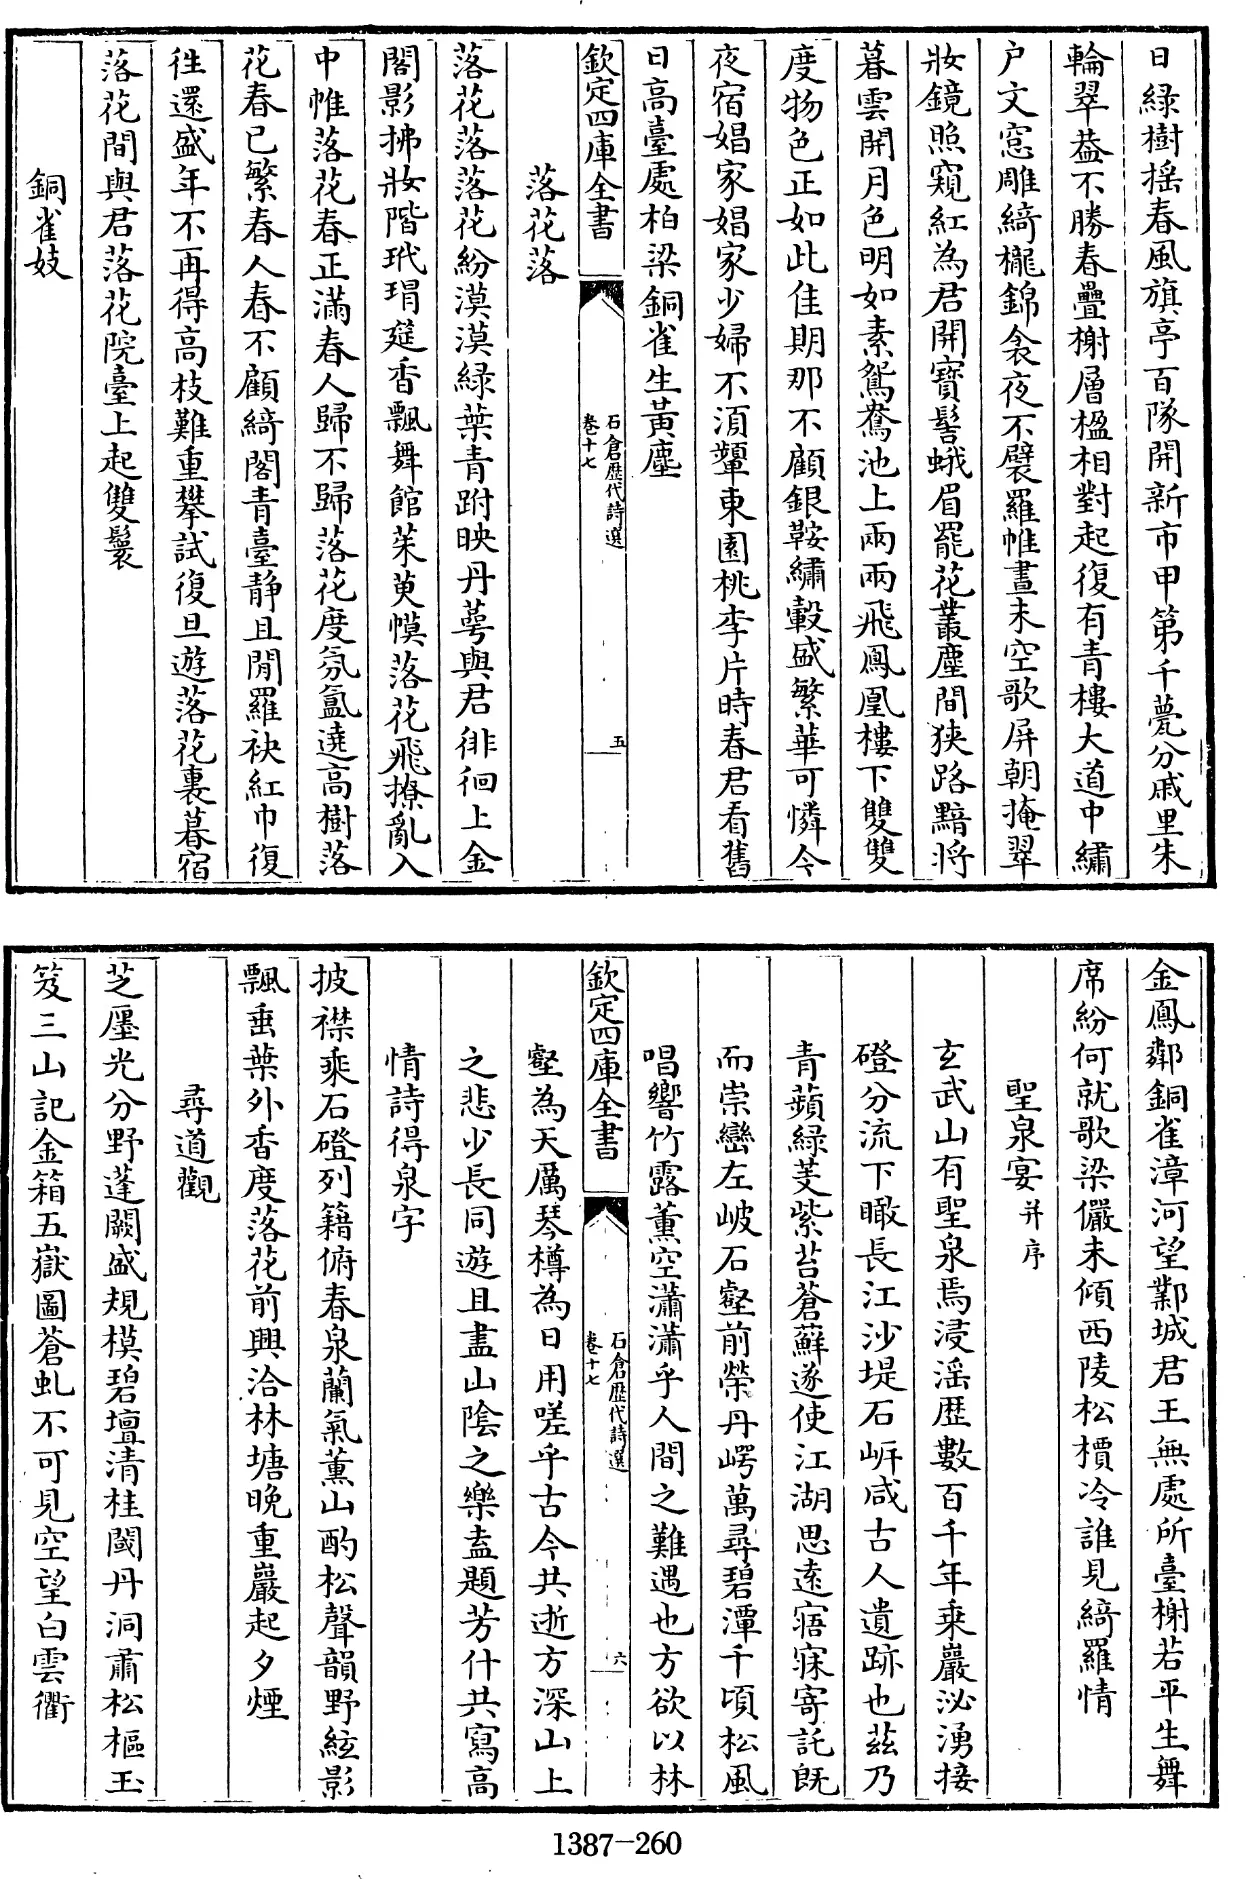 日緑樹揺春風旗亭百隊開新市甲第千甍分戚里朱
輪翠葢不勝春疊榭層楹相對起復有青樓大道中繡
户文窓雕綺櫳錦衾夜不襞羅帷晝未空歌屏朝掩翠
妝鏡晩窺紅為君開寳髻蛾眉罷花叢塵間狹路黯將
暮雲開月色明如素鴛鴦池上兩兩飛鳳凰樓下雙雙
度物色正如此佳期那不顧銀鞍繡轂盛繁華可憐今
夜宿娼家娼家少婦不須顰東園桃李片時春君看舊
日高臺處柏梁銅雀生黃塵
欽定四庫全書
石倉歴代詩選
卷十七
五
落花落
落花落落花紛漠漠緑葉青跗映丹萼與君徘徊上金
閣影拂妝階玳瑁筵香飄舞館茱萸幙落花飛撩亂入
中帷落花春正滿春人歸不歸落花度氛氳遶高樹落
花春已繁春人春不顧綺閣青臺静且閒羅袂紅巾復
徃還盛年不再得高枝難重攀試復旦遊落花裏暮宿
落花間與君落花院臺上起雙鬟
銅雀妓
金鳳鄰銅雀漳河望鄴城君王無處所臺榭若平生舞
席紛何就歌梁儼未傾西陵松檟冷誰見綺羅情
聖泉宴并序
玄武山有聖泉焉浸淫歴數百千年乗巖泌湧接
磴分流下瞰長江沙堤石㟁咸古人遺跡也兹乃
青蘋緑芰紫苔蒼蘚遂使江湖思逺寤寐寄託既
而崇巒左岥石壑前縈丹崿萬尋碧潭千頃松風
唱響竹露薰空瀟瀟乎人間之難遇也方欲以林
欽定四庫全書
石倉歴代詩選
卷十七
六
壑為天厲琴樽為日用嗟乎古今共逝方深山上
之悲少長同遊且盡山陰之樂盍題芳什共寫高
情詩得泉字
披襟乘石磴列籍俯春泉蘭氣薫山酌松聲韻野絃影
飄垂葉外香度落花前興洽林塘晩重巖起夕煙
尋道觀
芝廛光分野蓬闕盛規模碧壇清桂閾丹洞肅松樞玉
笈三山記金箱五嶽圖蒼虬不可見空望白雲衢
1387-260